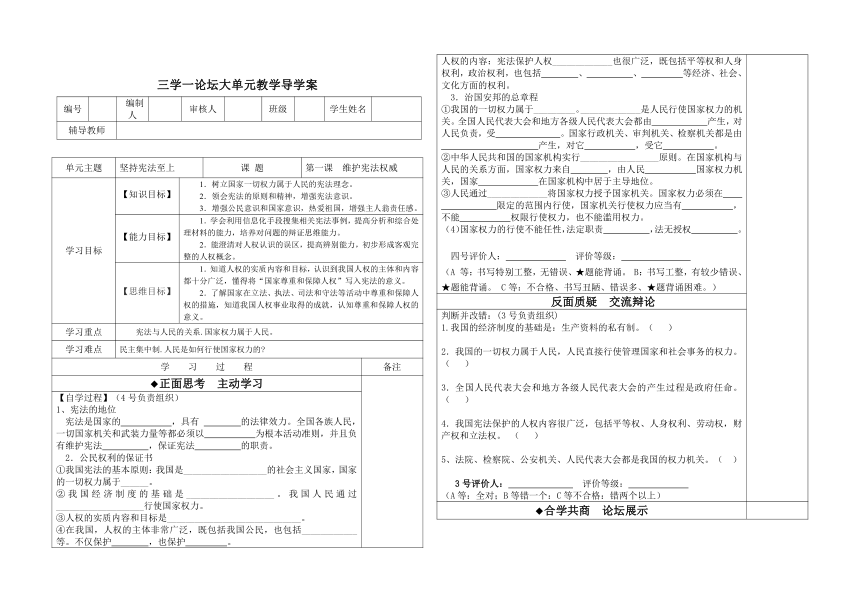 三学一论坛大单元教学导学案
编号 编制人 审核人 班级 学生姓名
辅导教师
单元主题 坚持宪法至上 课 题 第一课 维护宪法权威
学习目标
【知识目标】
1. 树立国家一切权力属于人民的宪法理念。
2. 领会宪法的原则和精神，增强宪法意识。
3. 增强公民意识和国家意识，热爱祖国，增强主人翁责任感。
【能力目标】
1. 学会利用信息化手段搜集相关宪法事例，提高分析和综合处
理材料的能力，培养对问题的辩证思维能力。
2. 能澄清对人权认识的误区，提高辨别能力，初步形成客观完
整的人权概念。
【思维目标】
1. 知道人权的实质内容和目标，认识到我国人权的主体和内容
都十分广泛，懂得将“国家尊重和保障人权”写入宪法的意义。
2. 了解国家在立法、执法、司法和守法等活动中尊重和保障人
权的措施，知道我国人权事业取得的成就，认知尊重和保障人权的
意义。
学习重点 宪法与人民的关系.国家权力属于人民。
学习难点 民主集中制.人民是如何行使国家权力的?
学 习 过 程 备注
◆正面思考 主动学习
【自学过程】(4 号负责组织)
1、宪法的地位
宪法是国家的________，具有 ______的法律效力。全国各族人民，
一切国家机关和武装力量等都必须以________为根本活动准则，并且负
有维护宪法________，保证宪法________的职责。
2．公民权利的保证书
①我国宪法的基本原则:我国是______________的社会主义国家，国家
的一切权力属于______。
②我国经济制度的基础是______________。我国人民通过
______________行使国家权力。
③人权的实质内容和目标是______________________。
④在我国，人权的主体非常广泛，既包括我国公民，也包括__________
等。不仅保护______，也保护_______。
人权的内容：宪法保护人权__________也很广泛，既包括平等权和人身
权利，政治权利，也包括______、________、_______等经济、社会、
文化方面的权利。
3．治国安邦的总章程
①我国的一切权力属于_______。__________是人民行使国家权力的机
关。全国人民代表大会和地方各级人民代表大会都由__________产生，对
人民负责，受___________。国家行政机关、审判机关、检察机关都是由
________________产生，对它________，受它________。
②中华人民共和国的国家机构实行_____________原则。在国家机构与
人民的关系方面，国家权力来自______，由人民________国家权力机
关，国家__________在国家机构中居于主导地位。
③人民通过__________将国家权力授予国家机关。国家权力必须在___
_________限定的范围内行使，国家机关行使权力应当有________，
不能________权限行使权力，也不能滥用权力。
(4)国家权力的行使不能任性,法定职责________,法无授权________。
四号评价人：__________ 评价等级：____________
（A 等：书写特别工整，无错误、★题能背诵。 B：书写工整，有较少错误、
★题能背诵。 C 等：不合格、书写丑陋、错误多、★题背诵困难。）
反面质疑 交流辩论
判断并改错：(3 号负责组织)
1.我国的经济制度的基础是：生产资料的私有制。（ ）
2．我国的一切权力属于人民，人民直接行使管理国家和社会事务的权力。
（ ）
3．全国人民代表大会和地方各级人民代表大会的产生过程是政府任命。
（ ）
4．我国宪法保护的人权内容很广泛，包括平等权、人身权利、劳动权，财
产权和立法权。 （ ）
5、法院、检察院、公安机关、人民代表大会都是我国的权力机关。（ ）
3 号评价人：__________ 评价等级：__________
（A 等；全对；B 等错一个；C 等不合格；错两个以上）
◆合学共商 论坛展示